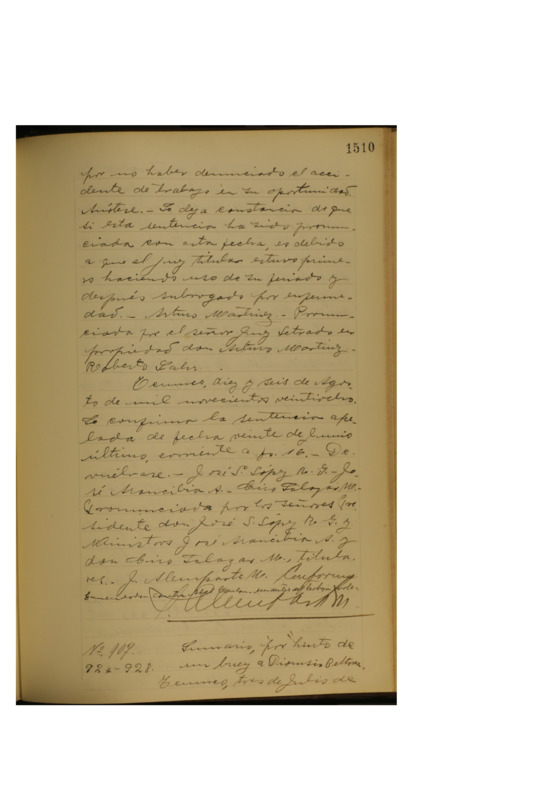 1510
por no haber denunciado el acci-
dente de trabajo en su oportunidad
Anótese.- Se deja constancia de que
si esta sentencia ha sido pronun-
ciada con esta fecha, es debido
a que el Juez titular estuvo prime-
ro haciendo uso de su feriado y
después subrogado por enferme-
dad.- Arturo Martinez.- Pronun-
ciada por el señor Juez Letrado en
propiedad don Arturo Martinez.-
Roberto
Temuco, diez y seis de Agos-
to de mil novecientos veintiocho.
Se confirma la sentencia ape-
lada de fecha veinte de Junio
último, corriente a fs. 16.- De-
vuélvase.- José S. López R. G.- Jo-
sé Arancibia A.- Ciro Salazar M.-
Pronunciada por los señores Pre-
sidente don José S. López R. G. y
Ministros José Arancibia A. y
don Ciro Salazar M., titula-
res.- J. Alemparte M. Conforme
Nº 109. Sumario, "por" hurto de
926-928. un buey a Dionisio Beltran.
Temuco, tres de Julio de